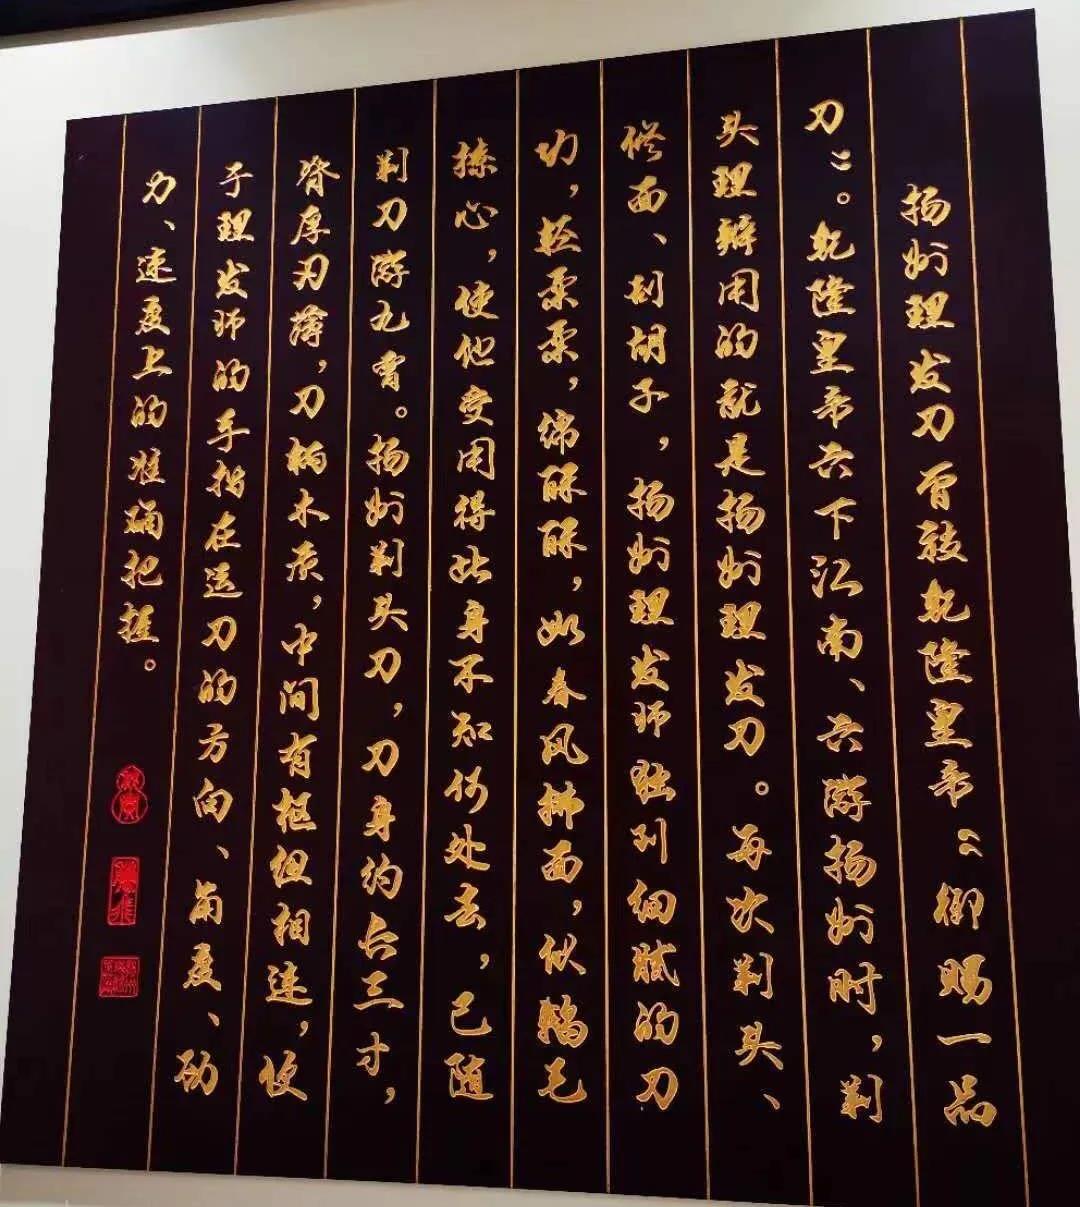 扬州理发刀曾被乾隆皇帝“御赐一品
刀”。乾隆皇帝六下江南、六游扬州时，剃
头理辫用的就是扬州理发刀。每次剃头、
修面、刮胡子，扬州理发师独到细腻的刀
功，轻柔柔，绵酥酥，如春风拂面，似鹅毛
撩心，使他受用得此身不知何处去，已随
剃刀游九霄。扬州剃头刀，刀身约长三寸，
脊厚刃薄，刀柄木质，中间有枢纽相连，便
于理发师的手指在运刀的方向、角度、劲
力、速度上的准确把握。